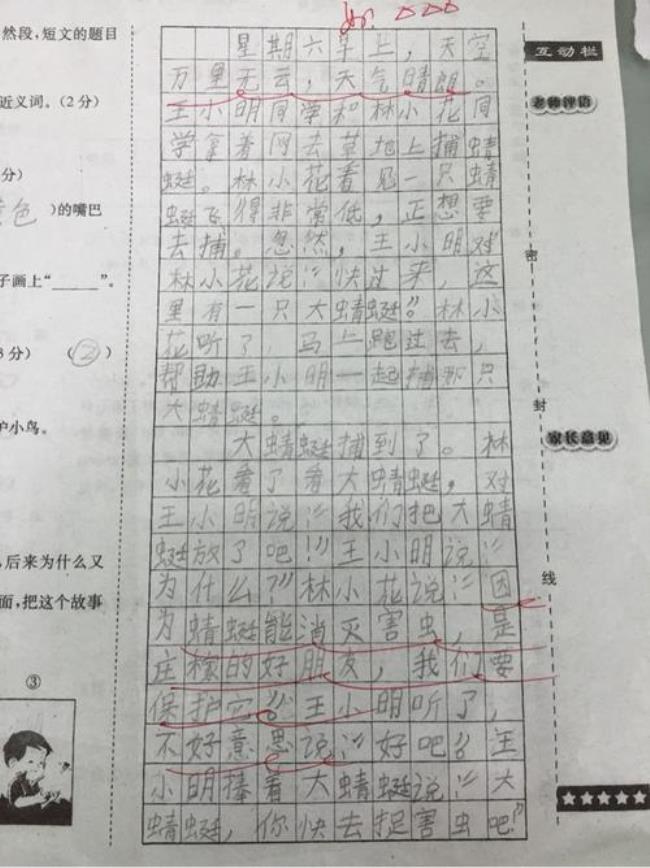 然段，短文的题目
近义词。（2分）
分）
色）的嘴巴
子画上“____”。
分）（②）
护小鸟。
后来为什么又
面，把这个故事
③
星期六早上，天空
万里无云，天气晴朗。
王小明同学和林小花同
学拿着网去草地上捕蜻
蜓。林小花看见一只蜻
蜓飞得非常低，正想要
去捕。忽然，王小明对
林小花说：“快过来，这
里有一只大蜻蜓。”林小
花听了，马上跑过去，
帮助王小明一起捕那只
大蜻蜓。
大蜻蜓捕到了。林
小花看了看大蜻蜓，对
王小明说：“我们把大蜻
蜓放了吧！”王小明说：“
为什么？”林小花说：“因
为蜻蜓能消灭害虫，是
庄稼的好朋友，我们要
保护它。”王小明听了，
不好意思说：“好吧。”王
小明捧着大蜻蜓说：“大
蜻蜓，你快去捉害虫吧。”
互动栏
老师评语
密
封
家长意见
线